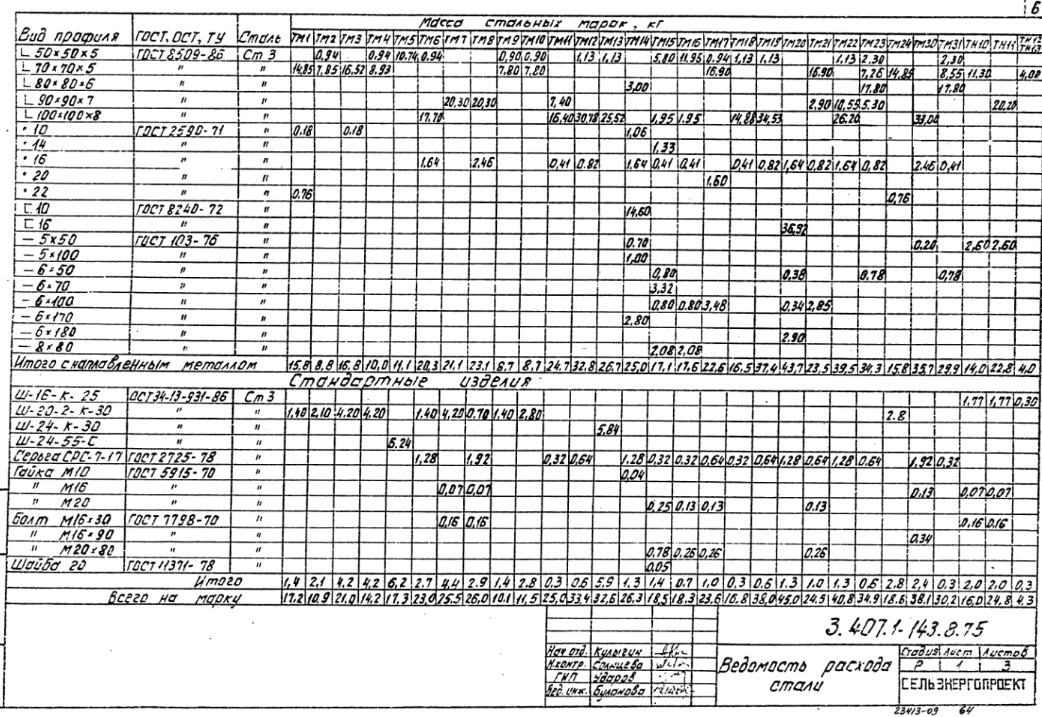 6
Масса стальных марок, кг
Вид профиля ГОСТ, ОСТ, ТУ Сталь ТМ1 ТМ2 ТМ3 ТМ4 ТМ5 ТМ6 ТМ7 ТМ8 ТМ9 ТМ10 ТМ11 ТМ12 ТМ13 ТМ14 ТМ15 ТМ16 ТМ17 ТМ18 ТМ19 ТМ20 ТМ21 ТМ22 ТМ23 ТМ24 ТМ30 ТМ31 ТН10 ТН11 ТН12 ТН13
L 50×50×5 ГОСТ 8509-86 Ст 3 0,94 0,94 10,74 0,94 0,90 0,90 1,13 1,13 5,80 11,95 0,94 1,13 1,13 1,13 2,30 2,30
L 70×70×5 " " 14,85 7,85 16,52 8,93 7,80 7,80 16,90 16,90 7,26 14,85 8,55 11,30 4,00
L 80×80×6 " " 3,00 17,80 17,80
L 90×90×7 " " 20,30 20,30 7,40 2,90 10,55 5,30 20,20
L 100×100×8 " " 17,70 16,40 30,78 25,52 1,95 1,95 14,88 34,53 26,20 33,00
• 10 ГОСТ 2590-71 " 0,18 0,18 1,06
• 14 " " 1,33
• 16 " " 1,64 2,46 0,41 0,82 1,64 0,41 0,41 0,41 0,82 1,64 0,82 1,64 0,82 2,46 0,41
• 20 " " 1,60
• 22 " " 0,76 0,76
[ 10 ГОСТ 8240-72 " 14,60
[ 16 " " 36,92
— 5×50 ГОСТ 103-76 " 0,70 0,20 2,60 2,60
— 5×100 " " 1,00
— 6×50 " " 0,80 0,38 0,78 0,78
— 6×70 " " 3,32
— 6×100 " " 0,80 0,80 3,48 0,34 2,85
— 6×170 " " 2,80
— 6×180 " " 2,90
— 8×80 " " 2,08 2,08
Итого с наплавленным металлом 15,8 8,8 16,8 10,0 11,1 20,3 21,1 23,1 8,7 8,7 24,7 32,8 26,7 25,0 17,1 17,6 22,6 16,5 37,4 43,7 23,5 39,5 34,3 15,8 35,7 29,9 14,0 22,8 4,0
Стандартные изделия
Ш-16-К-25 ОСТ34-13-931-86 Ст 3 1,77 1,77 0,30
Ш-20-2-К-30 " " 1,40 2,10 4,20 4,20 1,40 4,20 0,70 1,40 2,80 2.8
Ш-24-К-30 " " 5,84
Ш-24-55-С " " 6,24
Серьга СРС-7-17 ГОСТ 2725-78 " 1,28 1,92 0,32 0,64 1,28 0,32 0,32 0,64 0,32 0,64 1,28 0,64 1,28 0,64 1,92 0,32
Гайка М10 ГОСТ 5915-70 " 0,04
" М16 " " 0,07 0,07 0,13 0,07 0,07
" М20 " " 0,25 0,13 0,13 0,13
Болт М16×30 ГОСТ 7798-70 " 0,16 0,16 0,16 0,16
" М16×90 " " 0,34
" М20×80 " " 0,78 0,26 0,26 0,26
Шайба 20 ГОСТ 11371-78 " 0,05
Итого 1,4 2,1 4,2 4,2 6,2 2,7 4,4 2,9 1,4 2,8 0,3 0,6 5,9 1,3 1,4 0,7 1,0 0,3 0,6 1,3 1,0 1,3 0,6 2,8 2,4 0,3 2,0 2,0 0,3
Всего на марку 17,2 10,9 21,0 14,2 17,3 23,0 25,5 26,0 10,1 11,5 25,0 33,4 32,6 26,3 18,5 18,3 23,6 16,8 38,0 45,0 24,5 40,8 34,9 18,6 38,1 30,2 16,0 24,8 4,3
3.407.1-143.8.75
Нач отд. Кулыгин
Н.контр. Солнцева
ГИП Ударов
Вед. инж. Буланова
Ведомость расхода стали
Стадия Лист Листов
Р 1 3
СЕЛЬЭНЕРГОПРОЕКТ
23413-09 64